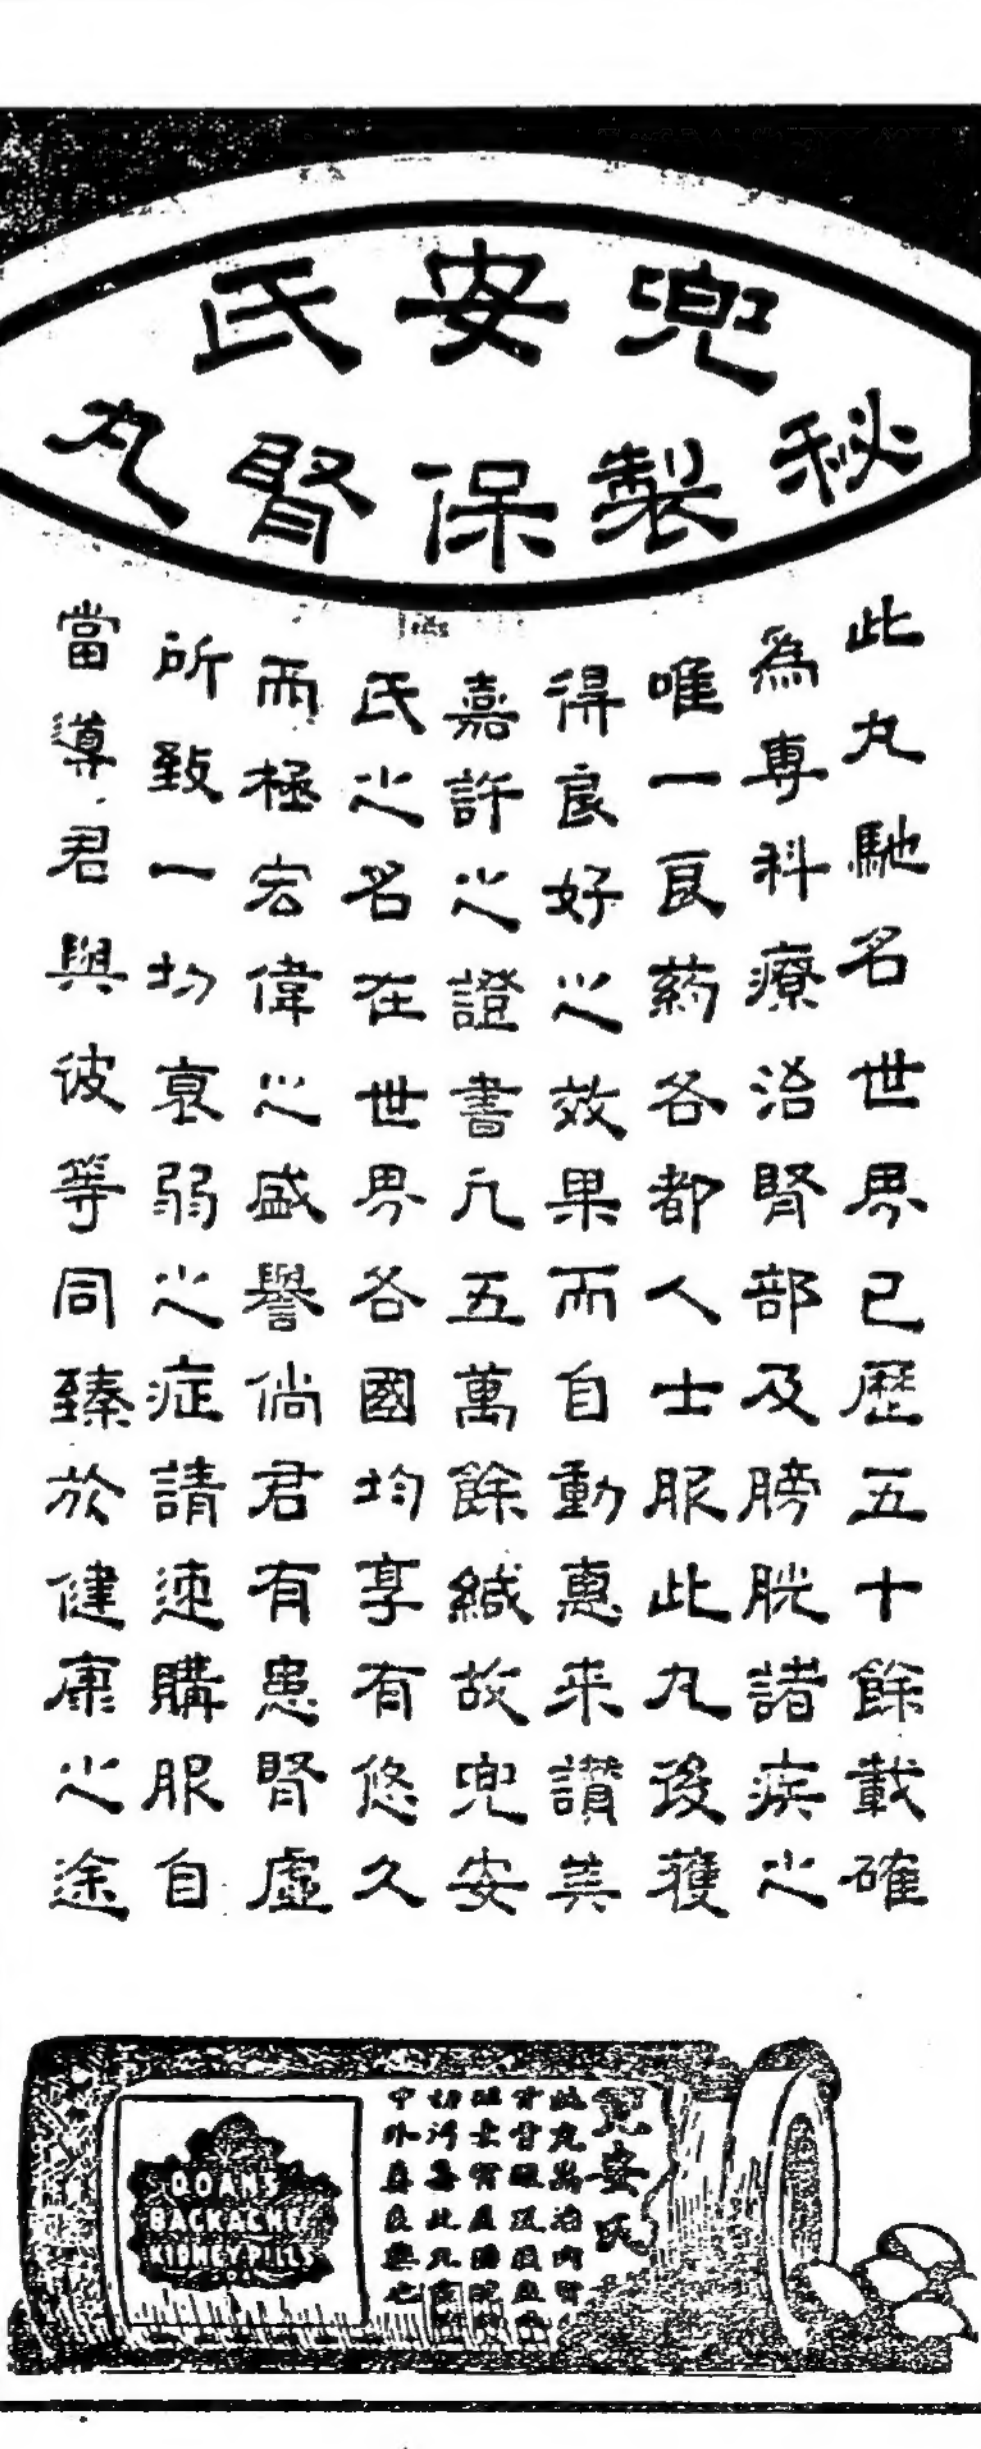 兜安氏
秘製保腎丸
此丸馳名世界已歷五十餘載確
為專科療治腎部及膀胱諸疾之
唯一良葯各都人士服此丸後獲
得良好之效果而自動惠来讃美
嘉許之證書凢五萬餘緘故兜安
氏之名在世界各國均享有悠久
而極宏偉之盛譽倘君有患腎虛
所致一切衰弱之症請速購服自
當導君與彼等同臻於健康之途
兜安氏
中外真良藥也
DOAN'S
BACKACHE
KIDNEY PILLS